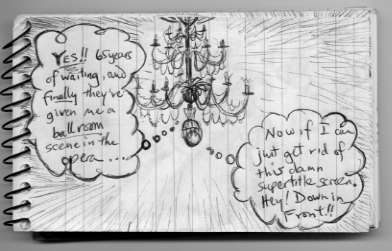 YES!! 65 years
of waiting, and
finally they've
given me a
ballroom
scene in the
opera ....
Now if I can
just get rid of
this damn
supertitle screen.
Hey! Down in
Front!!